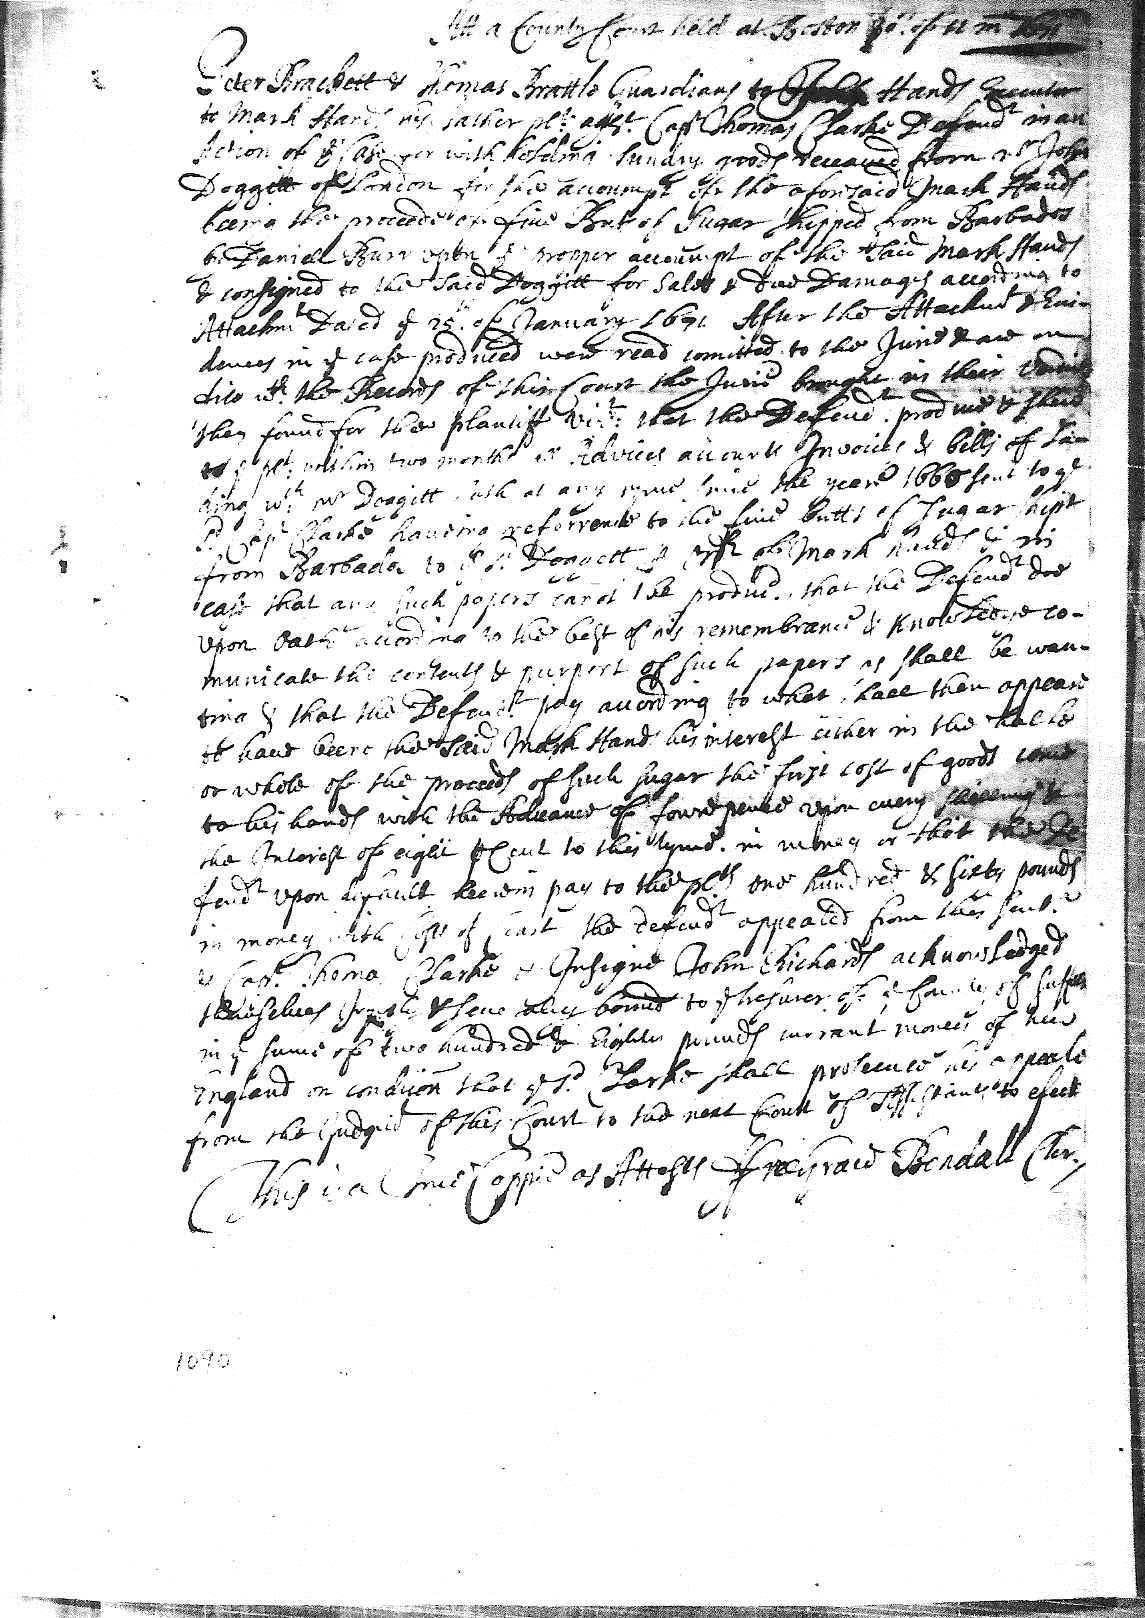 Att a County Court held at Boston 30th of 11 m 1671
Peter Brackett & Thomas Brattle Guardians to Hands Executor
to Mark Hands his father plts agst Capt Thomas Clarke Defendt in an
Action of ye Case for withholding sundry goods received from mr John
Doggett of London for the accoumpt of the aforsaid Mark Hands
beeing the proceeds of five But of Sugar shipped from Barbados
by Daniell Burr upon ye propper accoumpt of the said Mark Hands
& consigned to the said Doggitt for Sales & due Damages according to
Attachmt Dated ye 25th of January 1671 After the Attachmt & Evi-
dences in ye case produced were read comitted to the Jurie & are on
file wth the Records of this Court the Jurie brought in their Verdict
they found for the plantiff vizt: that the Defendt produce & shew
to ye plt within two months ye Advices accounts Invoices & bills of La-
ding wth mr Doggitt hath at any tyme since the yeare 1660 sent to ye
sd Capt Clarke haveing referrence to the five butts of Sugar shipt
from Barbados to ye sd Doggett p ordr of Mark Hands & in
case that any such papers canot be produc'd, that the Defendt doe
upon oath according to the best of his remembrance & Knowledge co-
municate the contents & purport of such papers as shall be wan-
ting & that the Defendt pay according to what shall then appeare
to have beene the said Mark Hands his interest either in the halfe
or whole of the proceeds of such sugar the first cost of goods come
to his hands with the Advance of foure pence upon every shilling &
the Interest of eight p Cent to this tyme in money or that the De-
fendt upon default heerein pay to the plts one hundred & sixty pounds
in money with Costs of Court the defendt appealed from this Sentc
& Capt Thomas Clarke & Insigne John Richards acknowledged
themselves Joyntly & severally bound to ye tresurer of ye County of Suffolk
in ye sume of two hundred & Eighty pounds currant money of New
England on condicion that ye sd Clarke shall prosecute his appeale
from the Judgmt of this Court to the next Court of Assistants to efect
This is a True Coppie as Attests ffreeGrace Bendall Cler.
1090